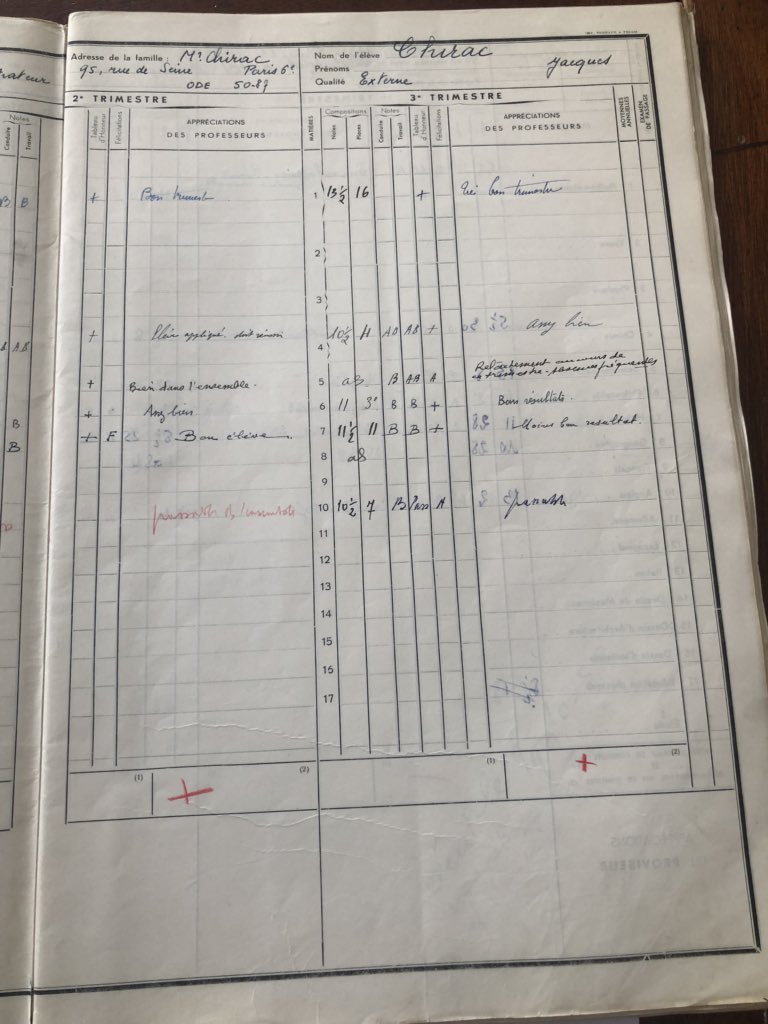 Adresse de la famille : Mr Chirac
95, rue de Seine Paris 6e
ODE 50-89
Nom de l'élève Chirac
Prénoms Jacques
Qualité Externe
rateur
2e TRIMESTRE
3e TRIMESTRE
Notes
Conduite
Travail
Tableau d'Honneur
Félicitations
APPRÉCIATIONS
DES PROFESSEURS
MATIÈRES
Compositions
Notes
Places
Notes
Conduite
Travail
Tableau d'Honneur
Félicitations
APPRÉCIATIONS
DES PROFESSEURS
MOYENNES ANNUELLES
EXAMEN DE PASSAGE
B B + Bon trimestre 1 13 1/2 16 + Très bon trimestre
2
3
AB + Élève appliqué doit réussir 4 10 1/2 11 AB AB + assez bien
+ Bien dans l'ensemble. 5 ab B AB A Relâchement au cours de
ce trimestre - absences fréquentes
B + Assez bien 6 11 3e B B + Bons résultats.
B + F Bon élève. 7 11 1/2 11 B B + Moins bon resultat.
8 ab
9
passable ds l'ensemble 10 10 1/2 7 B Pass A passable
11
12
13
14
15
16
17
(1) + (2) (1) + (2)